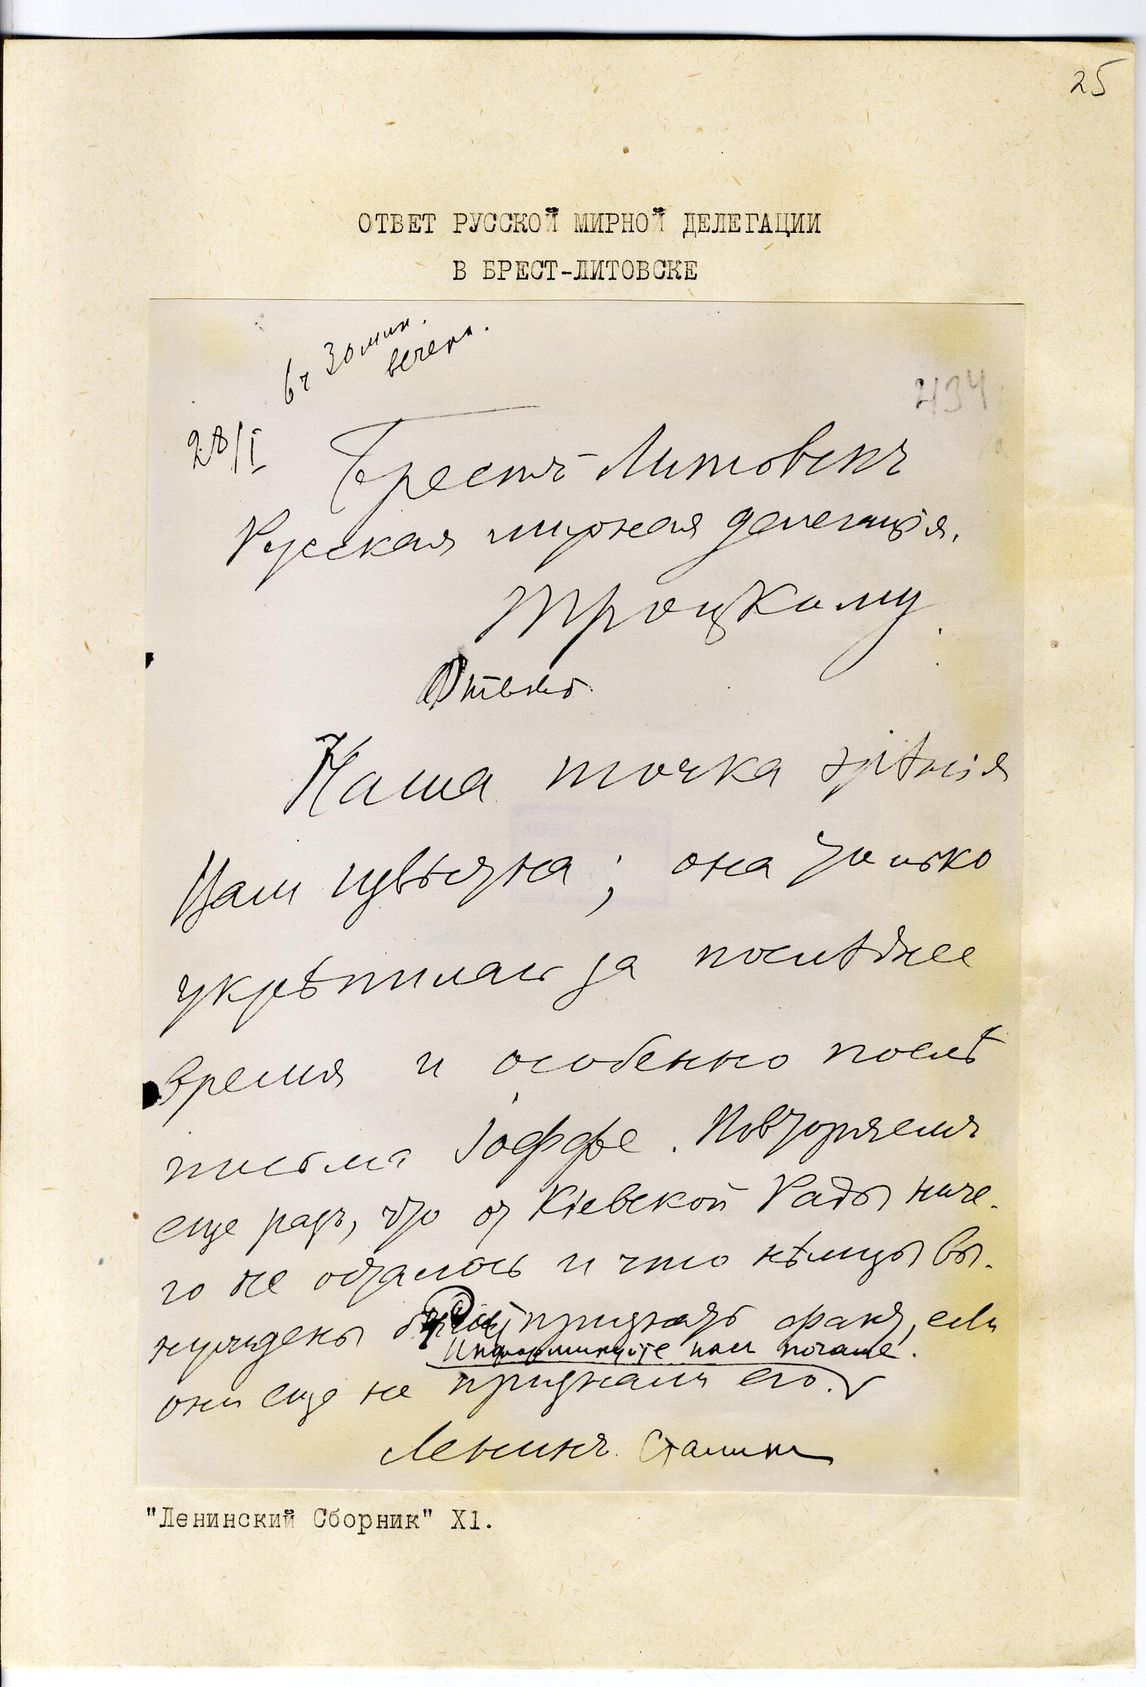 25
ОТВЕТ РУССКОЙ МИРНОЙ ДЕЛЕГАЦИИ
В БРЕСТ-ЛИТОВСКЕ
6 ч 30 мин.
вечера.
434
28/I
Брестъ-Литовскъ
Русская мирная делегація.
Троцкому.
Ответ
Наша точка зрѣнія
Вам извѣстна; она только
укрѣпилась за послѣднее
время и особенно послѣ
письма Іоффе. Повторяемъ
еще разъ, что от Кіевской Рады ниче-
го не осталось и что нѣмцы вы-
нуждены будут признать факт, если
они еще не признали его. Информируйте нас почаще.
Ленинъ. Сталинъ
"Ленинский Сборник" X1.